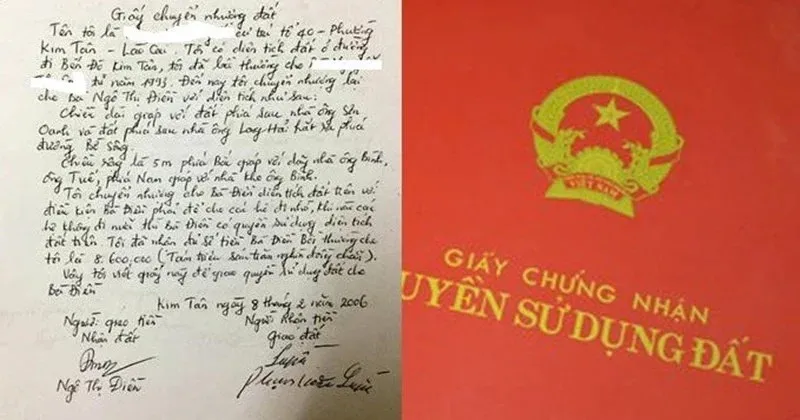 Giấy chuyển nhượng đất
Tên tôi là cư trú tổ 40 - Phường
Kim Tân - Lào Cai. Tôi có diện tích đất ở đường
đi Bến Đá Kim Tân, tôi đã bồi thường cho
từ năm 1993. Đến nay tôi chuyển nhượng lại
cho Bà Ngô Thị Điền với diện tích như sau:
Chiều dài giáp với đất phía sau nhà ông Sơn
Oanh và đất phía sau nhà ông Long Hải Kất ra phía
đường Bê Sông.
Chiều rộng là 5m phía Bắc giáp với dãy nhà ông Bình,
ông Tuế, phía Nam giáp với nhà kho ông Bình.
Tôi chuyển nhượng cho Bà Điền diện tích đất trên với
điều kiện Bà Điền phải để cho các hộ đi nhờ, khi nào các
hộ không đi nữa thì Bà Điền có quyền sử dụng diện tích
đất trên. Tôi đã nhận đủ số tiền Bà Điền Bồi thường cho
tôi là 8.600.000 (Tám triệu sáu trăm nghìn đồng chẵn).
Vậy tôi viết giấy này để giao quyền sử dụng đất cho
Bà Điền
Kim Tân ngày 8 tháng 2 năm 2006
Người giao tiền Người nhận tiền
Nhận đất giao đất
Ngô Thị Điền
VIỆT NAM
GIẤY CHỨNG NHẬN
UYỀN SỬ DỤNG ĐẤT